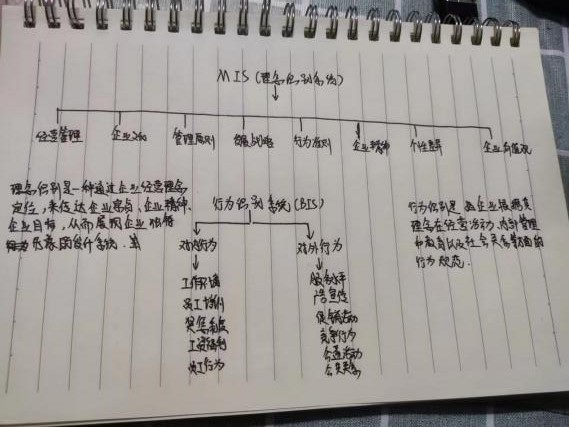 MIS(理念识别系统)
经营管理 企业文化 管理原则 发展战略 行为准则 企业精神 企业价值观
理念识别是一种通过企业经营理念
定位,来传达企业宗旨、企业精神、
企业目标,从而展现企业独特
的设计系统.
行为识别系统(BIS)
行为识别是 企业
理念在经营活动,内部管理
和教育以及社会 等方面的
行为规范.
对内行为 对外行为
工作环境
员工培训
奖惩制度
工资福利
员工行为
服务水平
广告宣传
促销活动
竞争行为
公益活动
公共关系